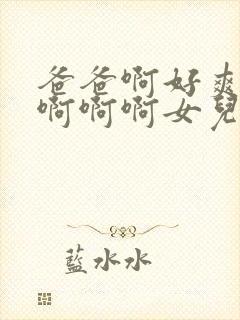 爸爸啊好爽
啊啊啊女兒
藍水水